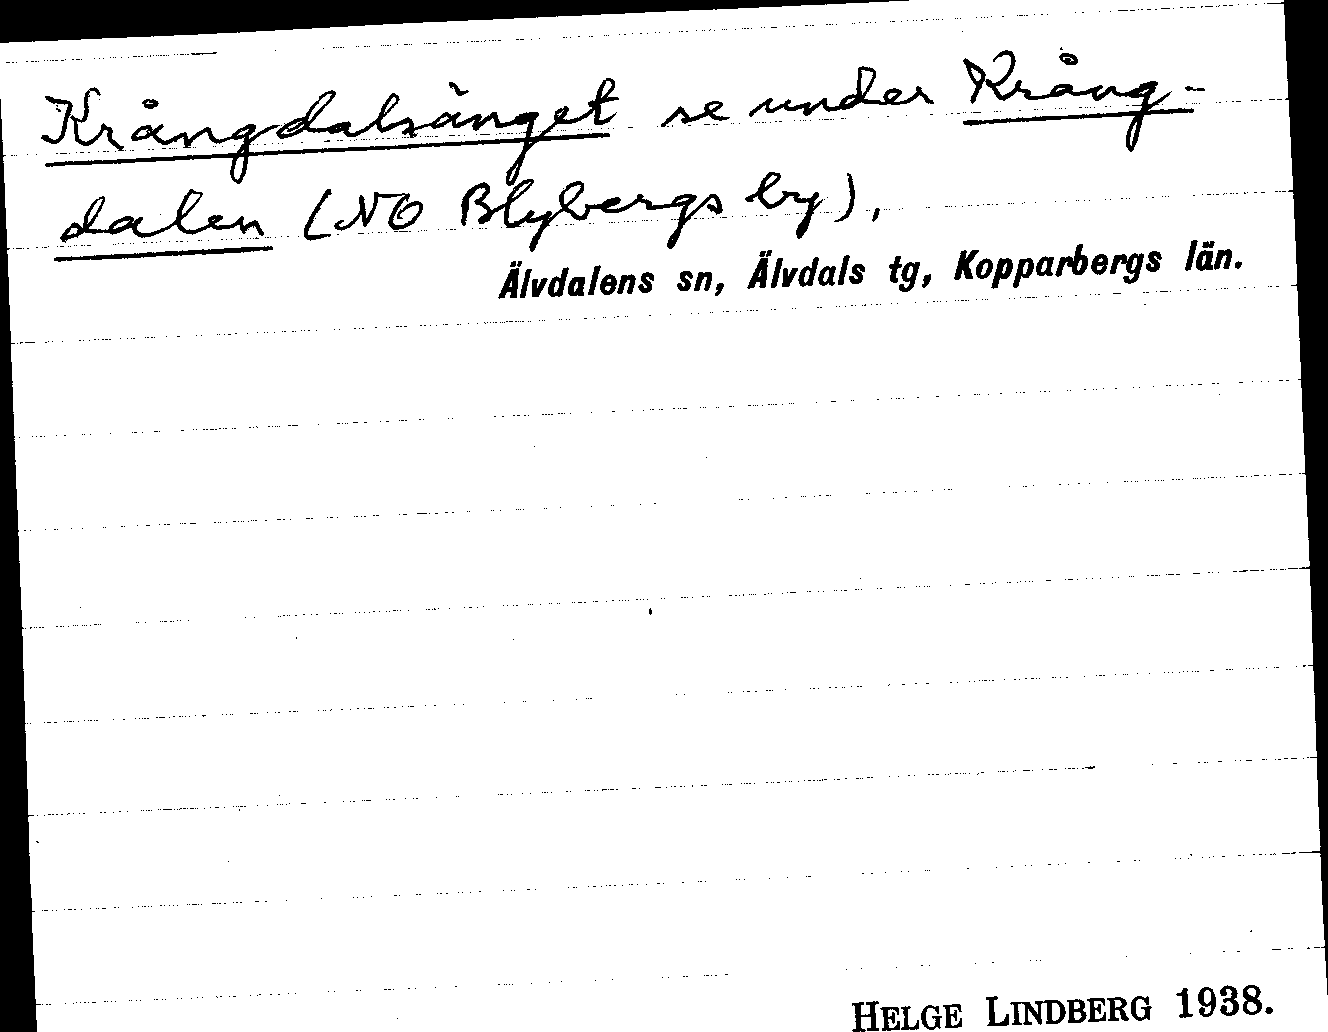 Krångdalsänget se under Krång-
dalen (NO Blybergs by),
Älvdalens sn, Älvdals tg, Kopparbergs län.
HELGE LINDBERG 1938.